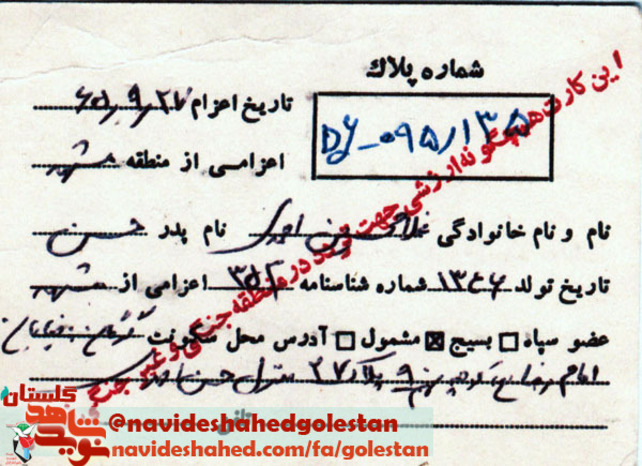 شماره پلاک
تاریخ اعزام ۶۵٫۹٫۲۷
DY_۰۹۵/۱۳۵
اعزامی از منطقه مشهد
نام و نام خانوادگی غلامحسین احمدی نام پدر حسن
تاریخ تولد ۱۳۴۶ شماره شناسنامه اعزامی از مشهد
عضو سپاه □ بسیج ☒ مشمول □ آدرس محل سکونت گرگان خیابان
امام رضا پلاک ۳۷ منزل حسن احمدی
این کارت هیچگونه ارزشی جهت تردد در منطقه جنگی و غیر جنگی
گلستان
نوید شاهد
@navideshahedgolestan
navideshahed.com/fa/golestan